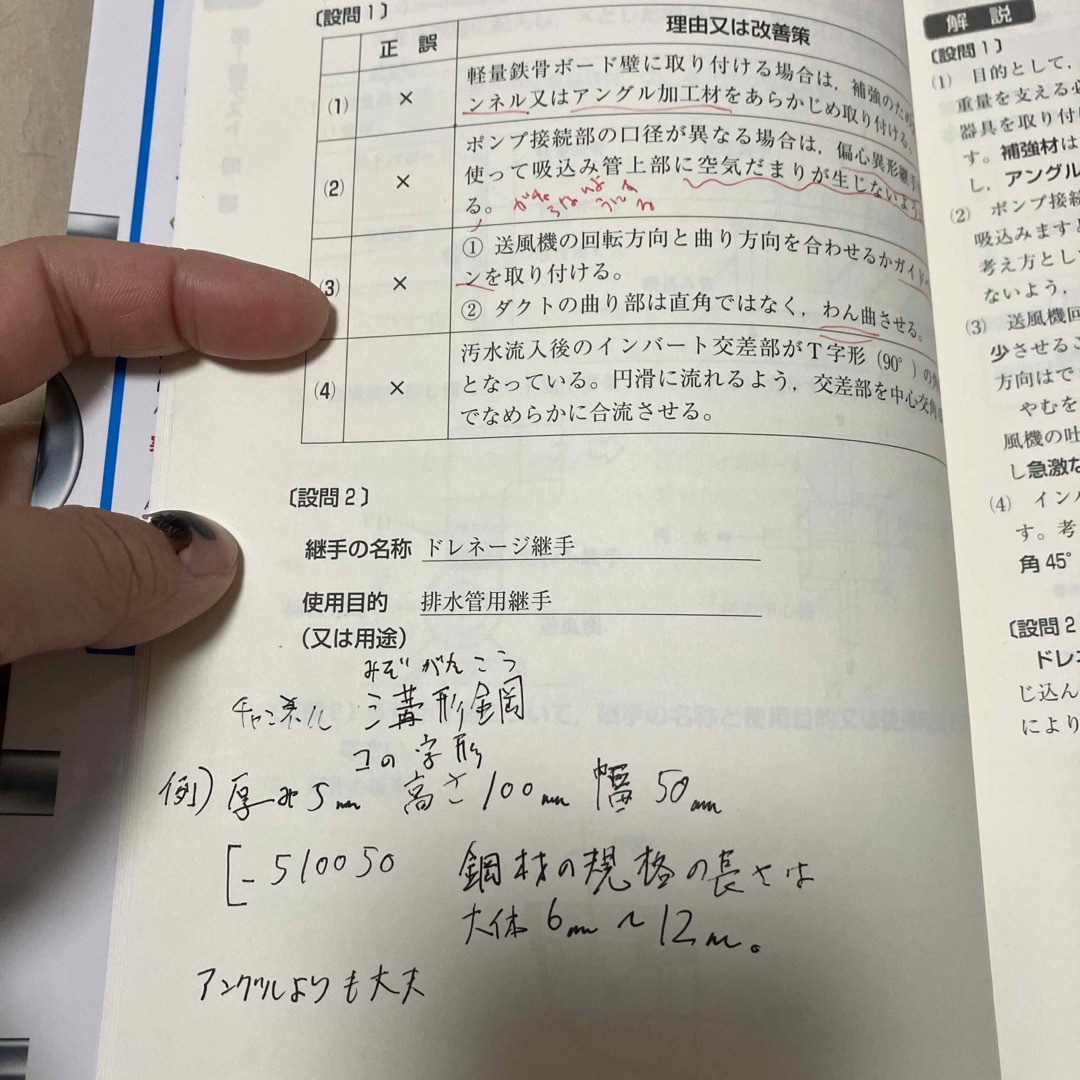 〔設問1〕
正 誤
理由又は改善策
(1)
×
軽量鉄骨ボード壁に取り付ける場合は，補強のため
ンネル又はアングル加工材をあらかじめ取り付ける。
(2)
×
ポンプ接続部の口径が異なる場合は，偏心異形継手
使って吸込み管上部に空気だまりが生じないよう
る。
(3)
×
① 送風機の回転方向と曲り方向を合わせるかガイド
ンを取り付ける。
② ダクトの曲り部は直角ではなく，わん曲させる。
(4)
×
汚水流入後のインバート交差部がT字形（90°）の
となっている。円滑に流れるよう，交差部を中心交角
でなめらかに合流させる。
〔設問2〕
継手の名称 ドレネージ継手
使用目的 排水管用継手
（又は用途）
みぞがたこう
チャンネル 溝形鋼
コの字形
例) 厚み5mm 高さ100mm 幅50mm
[-510050 鋼材の規格の長さは
大体6m～12m。
アングルよりも丈夫
解 説
〔設問1〕
(1) 目的として，
重量を支える必
器具を取り付け
す。補強材は
し，アングル
(2) ポンプ接続
吸込みますと
考え方として
ないよう，
(3) 送風機回
少させるこ
方向はでき
やむを
風機の吐
し急激な
(4) インバ
す。考
角45°
〔設問2
ドレネ
じ込ん
により